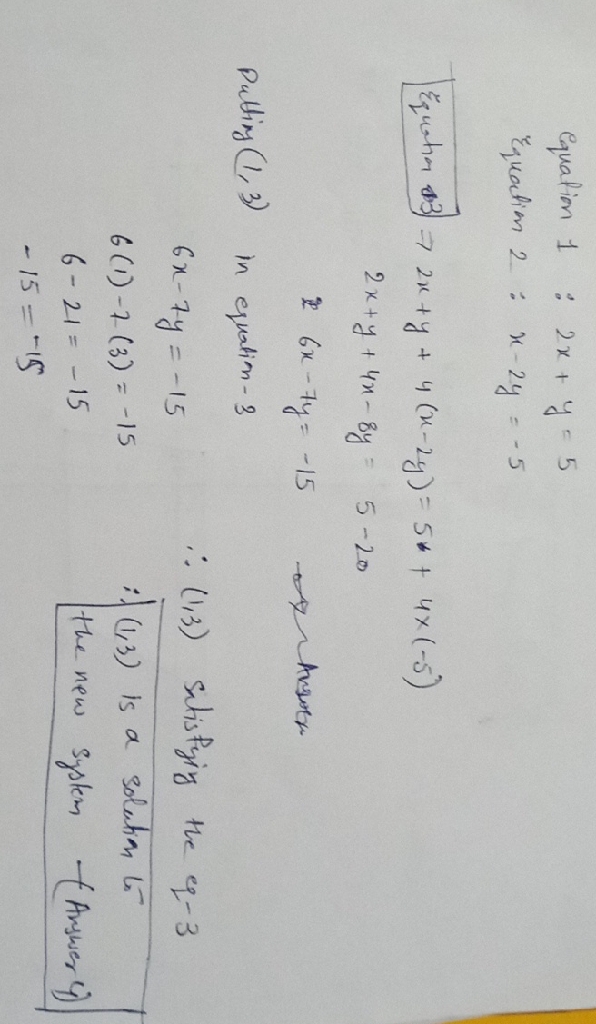 equation 1 : 2x + y = 5
Equation 2 : x - 2y = -5
Equation 3 → 2x + y + 4(x - 2y) = 5 + 4x(-5)
2x + y + 4x - 8y = 5 - 20
6x - 7y = -15
Putting (1,3) in equation - 3
6x - 7y = -15
6(1) - 7(3) = -15
6 - 21 = -15
-15 = -15
∴ (1,3) satisfying the eq-3
∴ (1,3) is a solution to
the new system